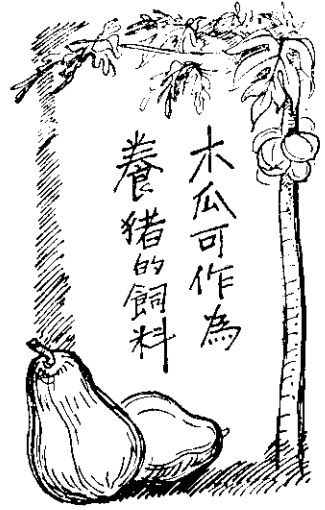 木瓜可作為
養猪的飼料